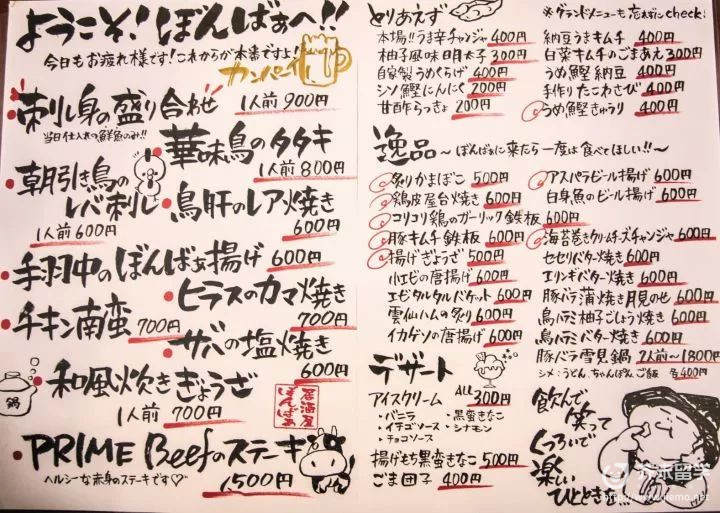 ようこそ!ぼんばぁへ!!
今日もお疲れ様です!これからが本番ですよ!
カンパーイ
刺し身の盛り合わせ 1人前 900円
当日仕入れの鮮魚のみ!!
華味鳥のタタキ
1人前 800円
朝引き鳥の
レバ刺し
1人前 600円
鳥肝のレア焼き
600円
手羽中のぼんばぁ揚げ 600円
ヒラスのカマ焼き
700円
チキン南蛮 700円
サバの塩焼き
600円
鍋
和風炊きぎょうざ
1人前 700円
居酒屋
ぼんばぁ
PRIME Beefのステーキ
ヘルシーな赤身のステーキです♡
1500円
とりあえず
本場!!うま辛チャンジャ 400円
柚子風味明太子 300円
自家製うめくらげ 400円
シソ鰹にんにく 200円
甘酢らっきょ 200円
※グランドメニューも忘れずにcheck!
納豆うまキムチ 400円
白菜キムチのごまあえ 300円
うめ鰹納豆 400円
手作りたこわさび 400円
うめ鰹きゅうり 400円
逸品 ~ぼんばぁに来たら一度は食べてほしい!!~
炙りかまぼこ 500円
鶏皮屋台焼き 600円
コリコリ鶏のガーリック鉄板 600円
豚キムチ鉄板 600円
揚げぎょうざ 500円
小エビの唐揚げ 600円
エビタルタルバケット 600円
雲仙ハムの炙り 600円
イカゲソの唐揚げ 600円
アスパラビール揚げ 600円
白身魚のビール揚げ 600円
海苔巻きクリームチーズチャンジャ 600円
セセリバター焼き 600円
エリンギバター焼き 600円
豚バラ蒲焼き月見のせ 600円
鳥ハラミ柚子ごしょう焼き 600円
鳥ハラミバター焼き 600円
豚バラ雪見鍋 2人前~1800円
シメ:うどん、ちゃんぽん、ご飯 各400円
デザート
アイスクリーム ALL 300円
・バニラ ・黒蜜きなこ
・イチゴソース ・シナモン
・チョコソース
揚げもち黒蜜きなこ 500円
ごま団子 400円
飲んで
笑って
くつろいで
楽しい
ひとときを…